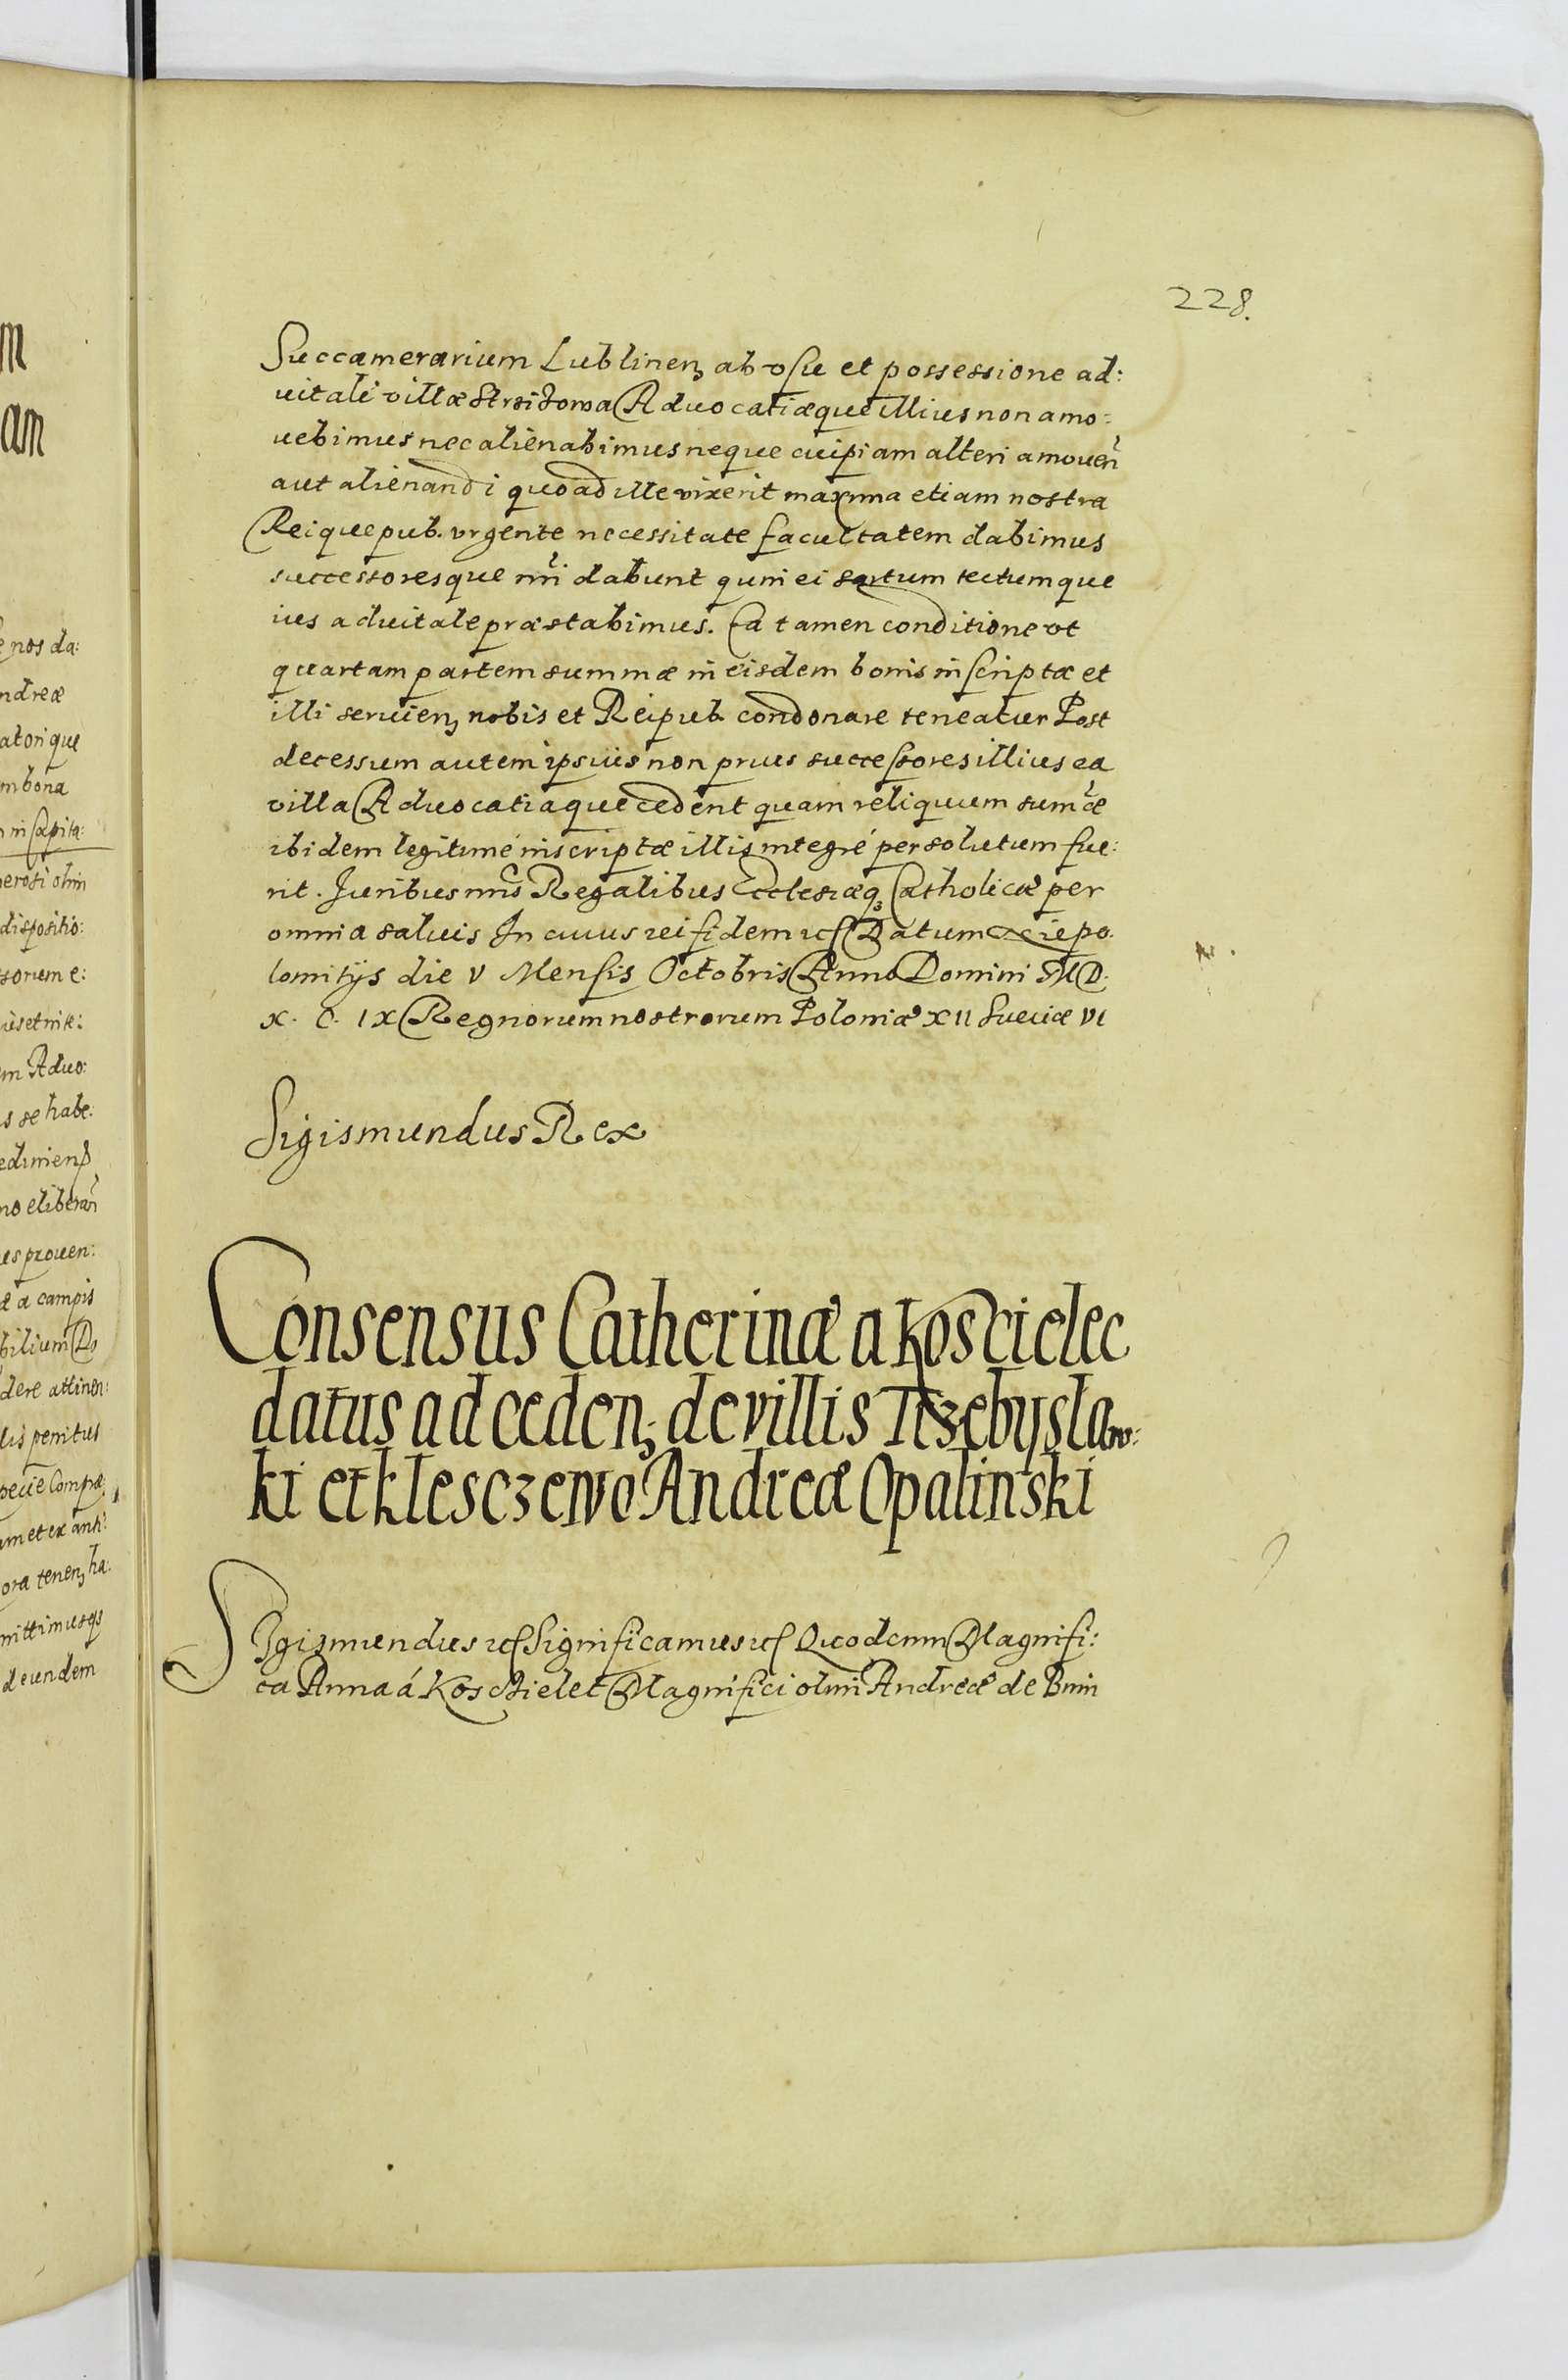 228.
Succamerarium Lublinen₃ ab vsu et possessione ad:
uitali villæ Advocatiæque illius non amo:
uebimus nec alienabimus neque cuipiam alteri amouen̄
aut alienandi quoad ille vixerit maxima etiam nostra
Reique pub. vrgente necessitate facultatem dabimus
successoresque nr̄i dabunt quin ei sartum tectumque
ius aduitale præstabimus. Ea tamen conditione vt
quartam partem summæ in eisdem bonis inscriptæ et
illi seruien₃ nobis et Reipub. condonare teneatur Post
decessum autem ipsius non prius successores illius ea
villa Aduocatiaque cedent quam reliquum sum̄æ
ibidem legitimé inscriptæ illis integré persolutum fue:
rit. Juribus nr̄is Regalibus Ecclesiæq₃ Catholicæ per
omnia saluis In cuius rei fidem etc Datum Niepo.
lomitijs die V Mensis Octobris Anno Domini MD.
X. C. IX Regnorum nostrorum Poloniæ XII Sueciæ VI
Sigismundus Rex
Consensus Catherinæ a Koscielec
datus ad ceden₃ de villis Trzebyslaw:
ki et klesczewo Andreæ Opalinski
SIgismundus etc Significamus etc Quod cum Magnifi:
ca Anna á Koscielec Magnifici olim Andreæ de Bnin
e nos da:
ndreæ
atorique
m bona
in Capita:
erosi olim
dispositio:
m Aduo:
s se habe:
no eliberan̄
es prouen:
æ a campis
bilium
dere attinen:
lis penitus
ora tenen₃ ha:
mittimusq₃
d eundem
m
am